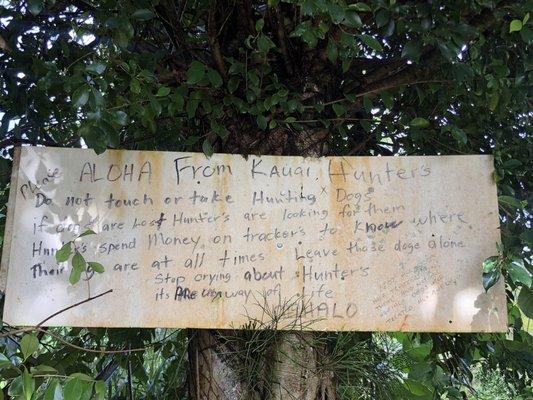 ALOHA From Kauai Hunter's
Please Do not touch or take Hunting Dogs
if dogs are Lost Hunter's are looking for them
Hunters spend Money on trackers to Know where
Their are at all times Leave those dogs alone
Stop crying about Hunter's
its way of life
MAHALO